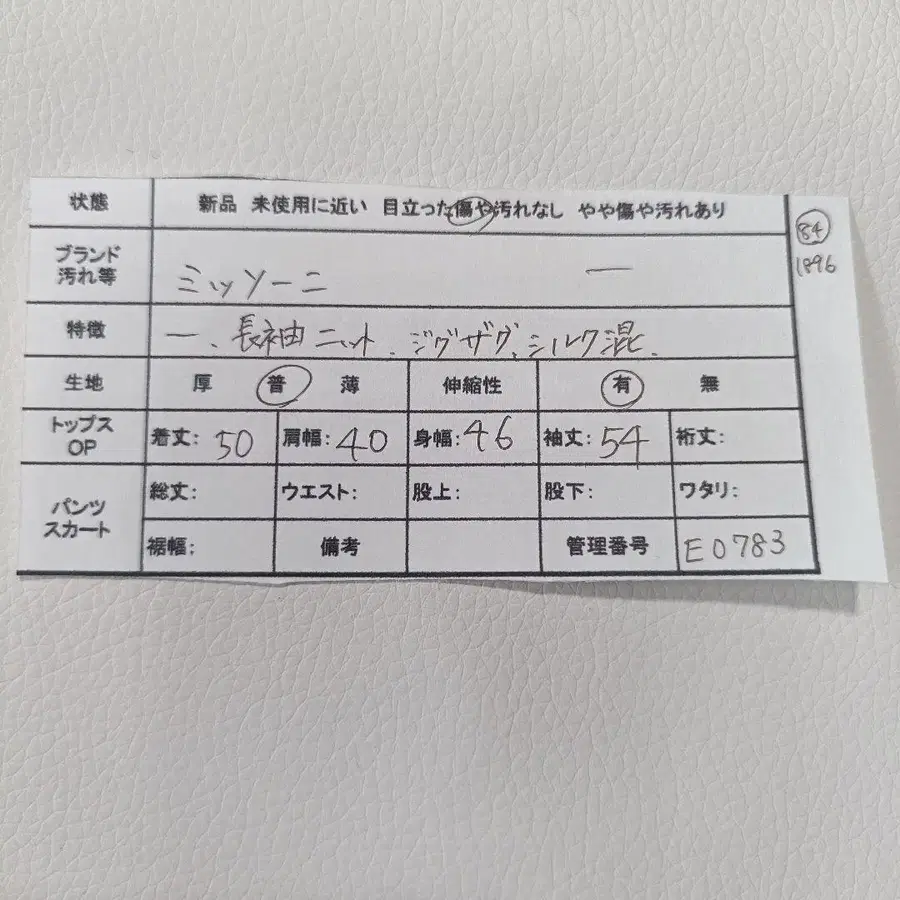 状態 新品 未使用に近い 目立った傷や汚れなし やや傷や汚れあり
84
1896
ブランド
汚れ等 ミッソーニ ー
特徴 ー、長袖ニット、ジグザグ、シルク混、
生地 厚 普 薄 伸縮性 有 無
トップス
OP 着丈: 50 肩幅: 40 身幅: 46 袖丈: 54 裄丈:
パンツ
スカート
総丈: ウエスト: 股上: 股下: ワタリ:
裾幅: 備考 管理番号 E0783